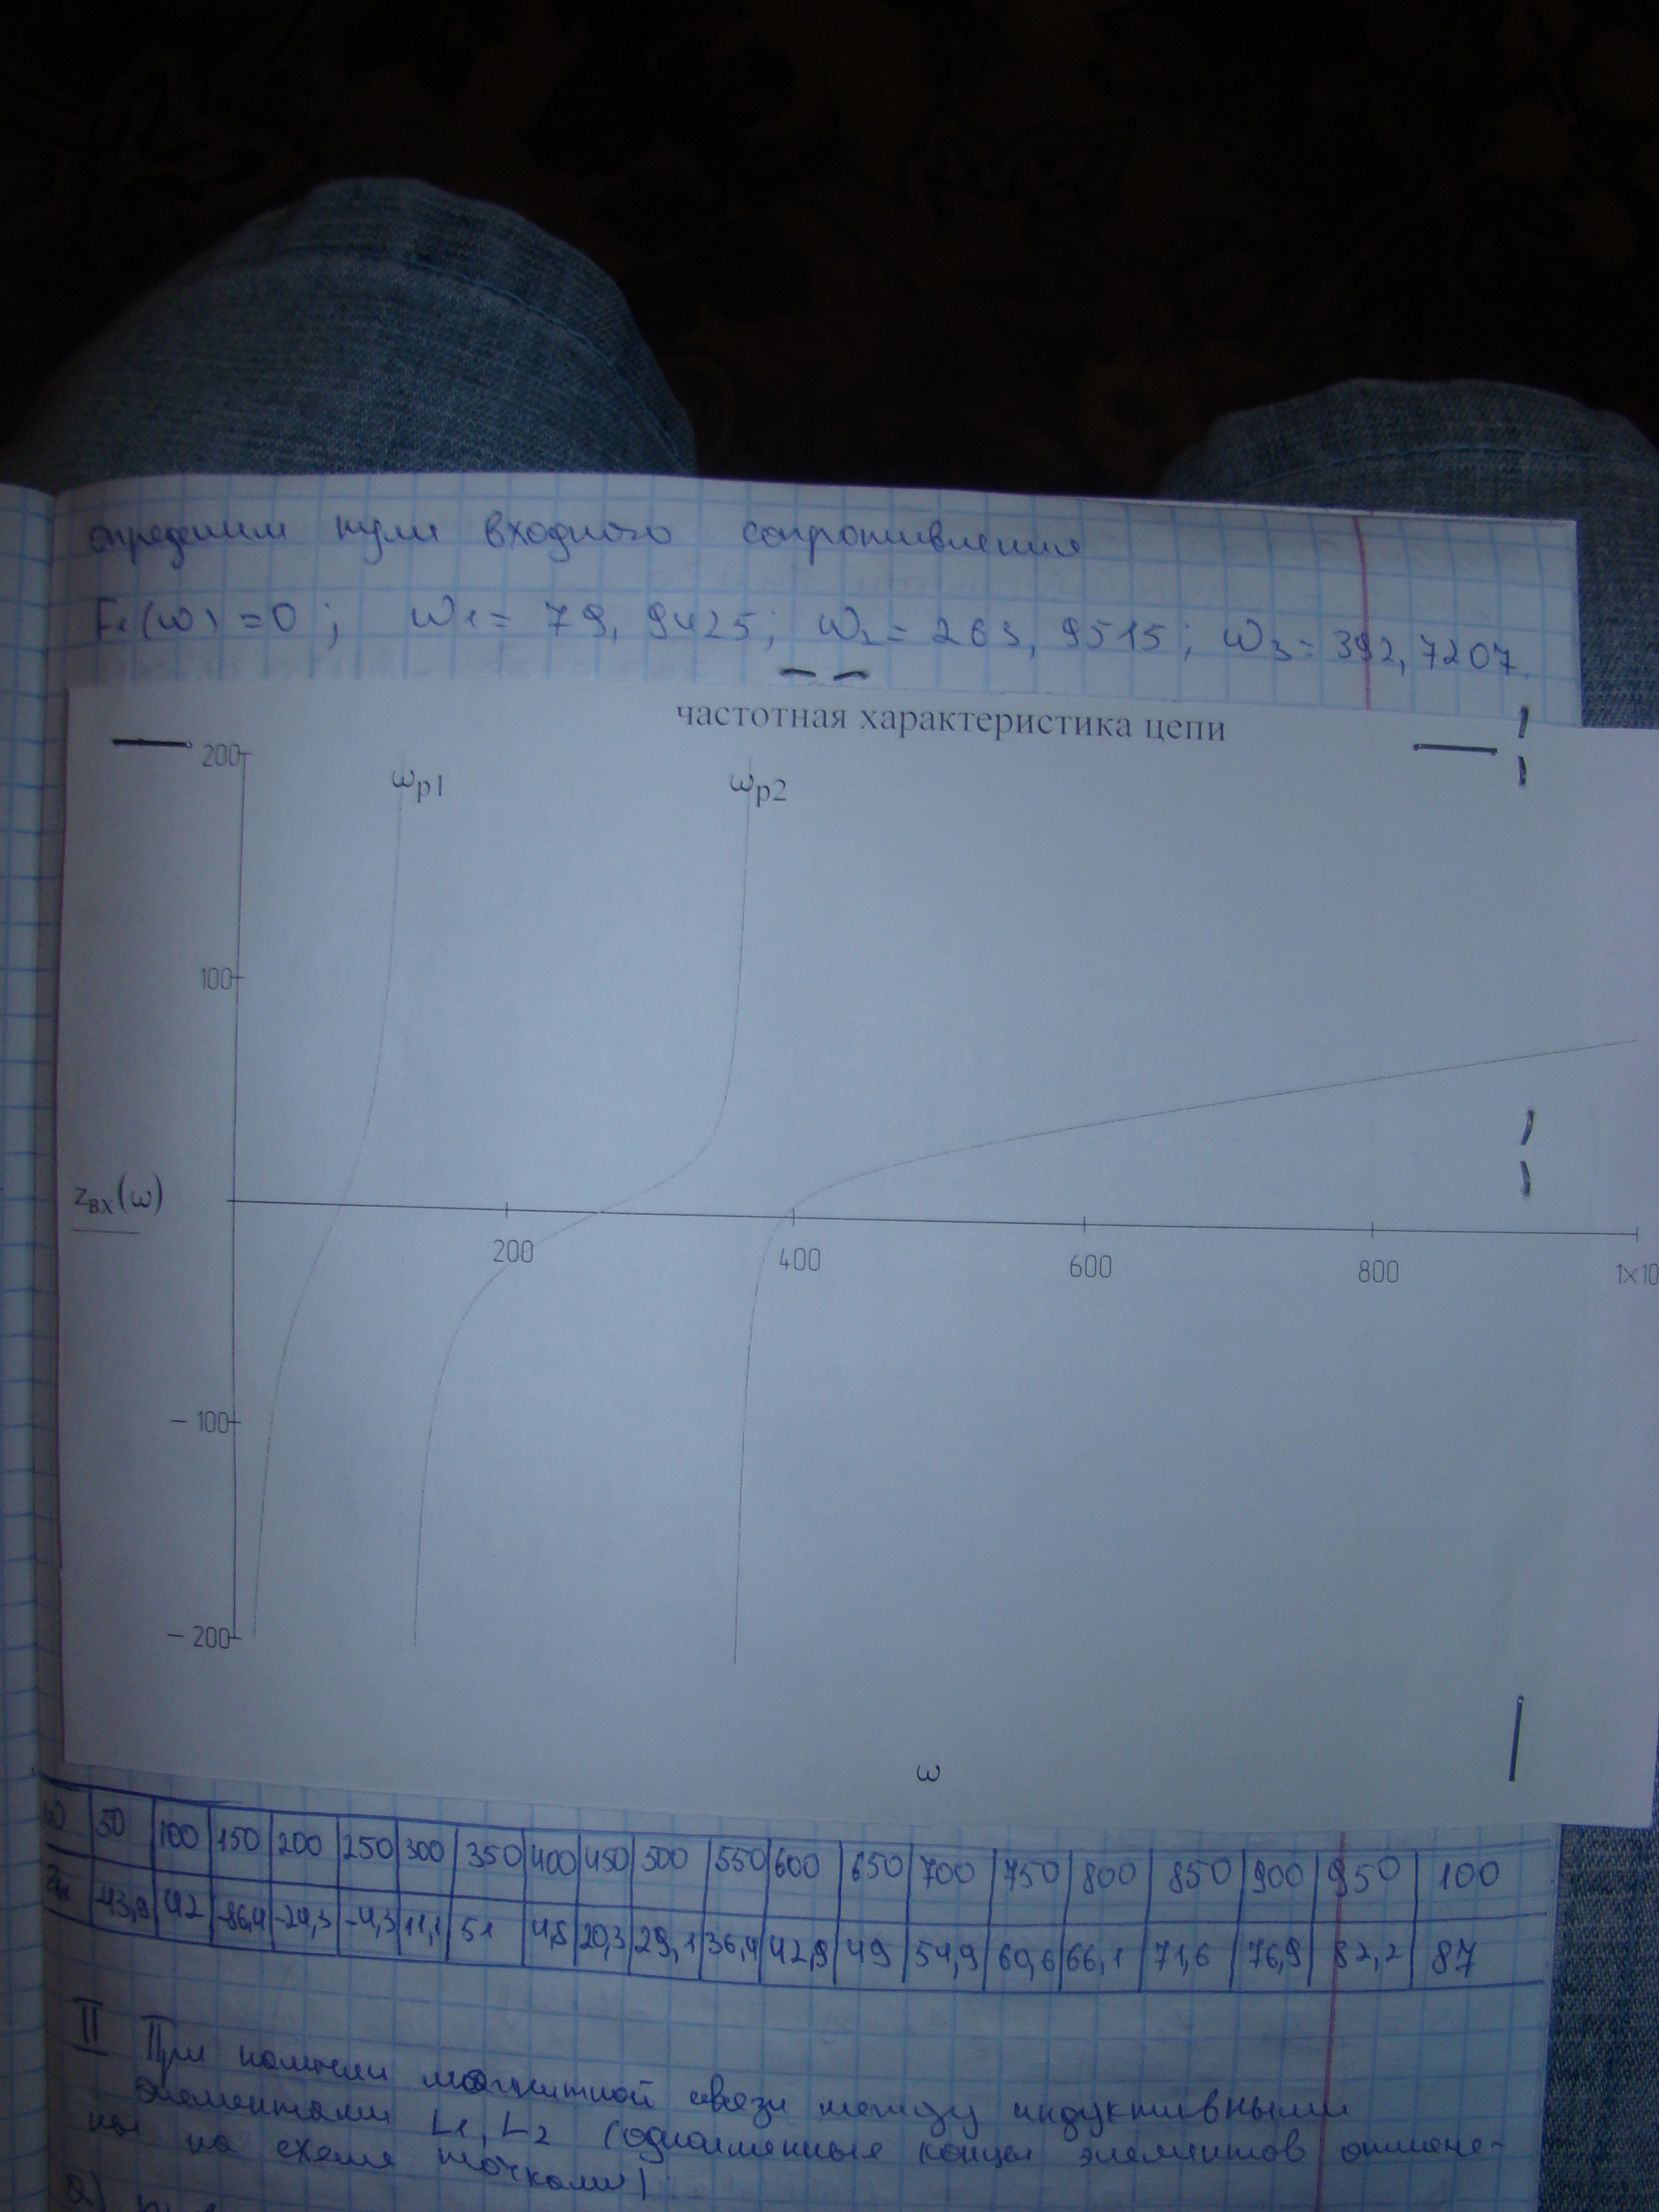 определим нули входного сопротивления
F₁(ω) = 0 ; ω₁ = 79,9425; ω₂ = 263,9515; ω₃ = 392,7207.
частотная характеристика цепи
200
ωp1 ωp2
100
zвх(ω)
200 400 600 800 1×10
− 100
− 200
ω
ω 50 100 150 200 250 300 350 400 450 500 550 600 650 700 750 800 850 900 950 100
Zвх -43,9 42 -86,4 -24,3 -4,3 11,1 51 4,8 20,3 29,1 36,4 42,9 49 54,9 60,6 66,1 71,6 76,9 82,2 87
II При наличии магнитной связи между индуктивными
элементами L₁, L₂ (одноименные концы элементов отмече-
ны на схеме точками)
а)